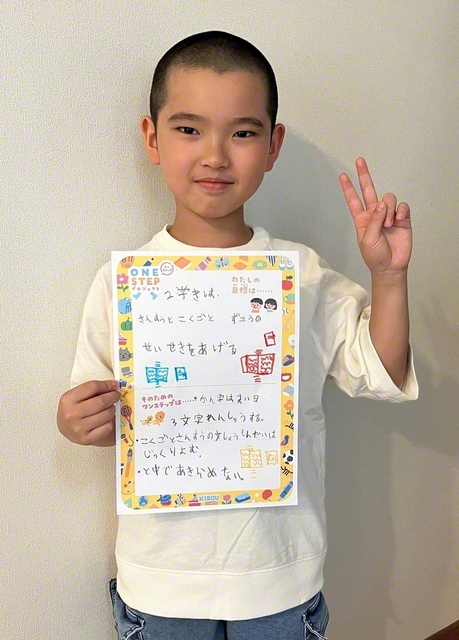 ONE
STEP
プロジェクト
わたしの
目標は……
2学きは、
さんすうと こくごと ずこうの
せいせきをあげる
そのための
ワンステップは……
・かん字はまい日
3文字れんしゅうする。
・こくごとさんすうの文しょうもんだいは
じっくりよむ。
・と中であきらめない。
KIDOU